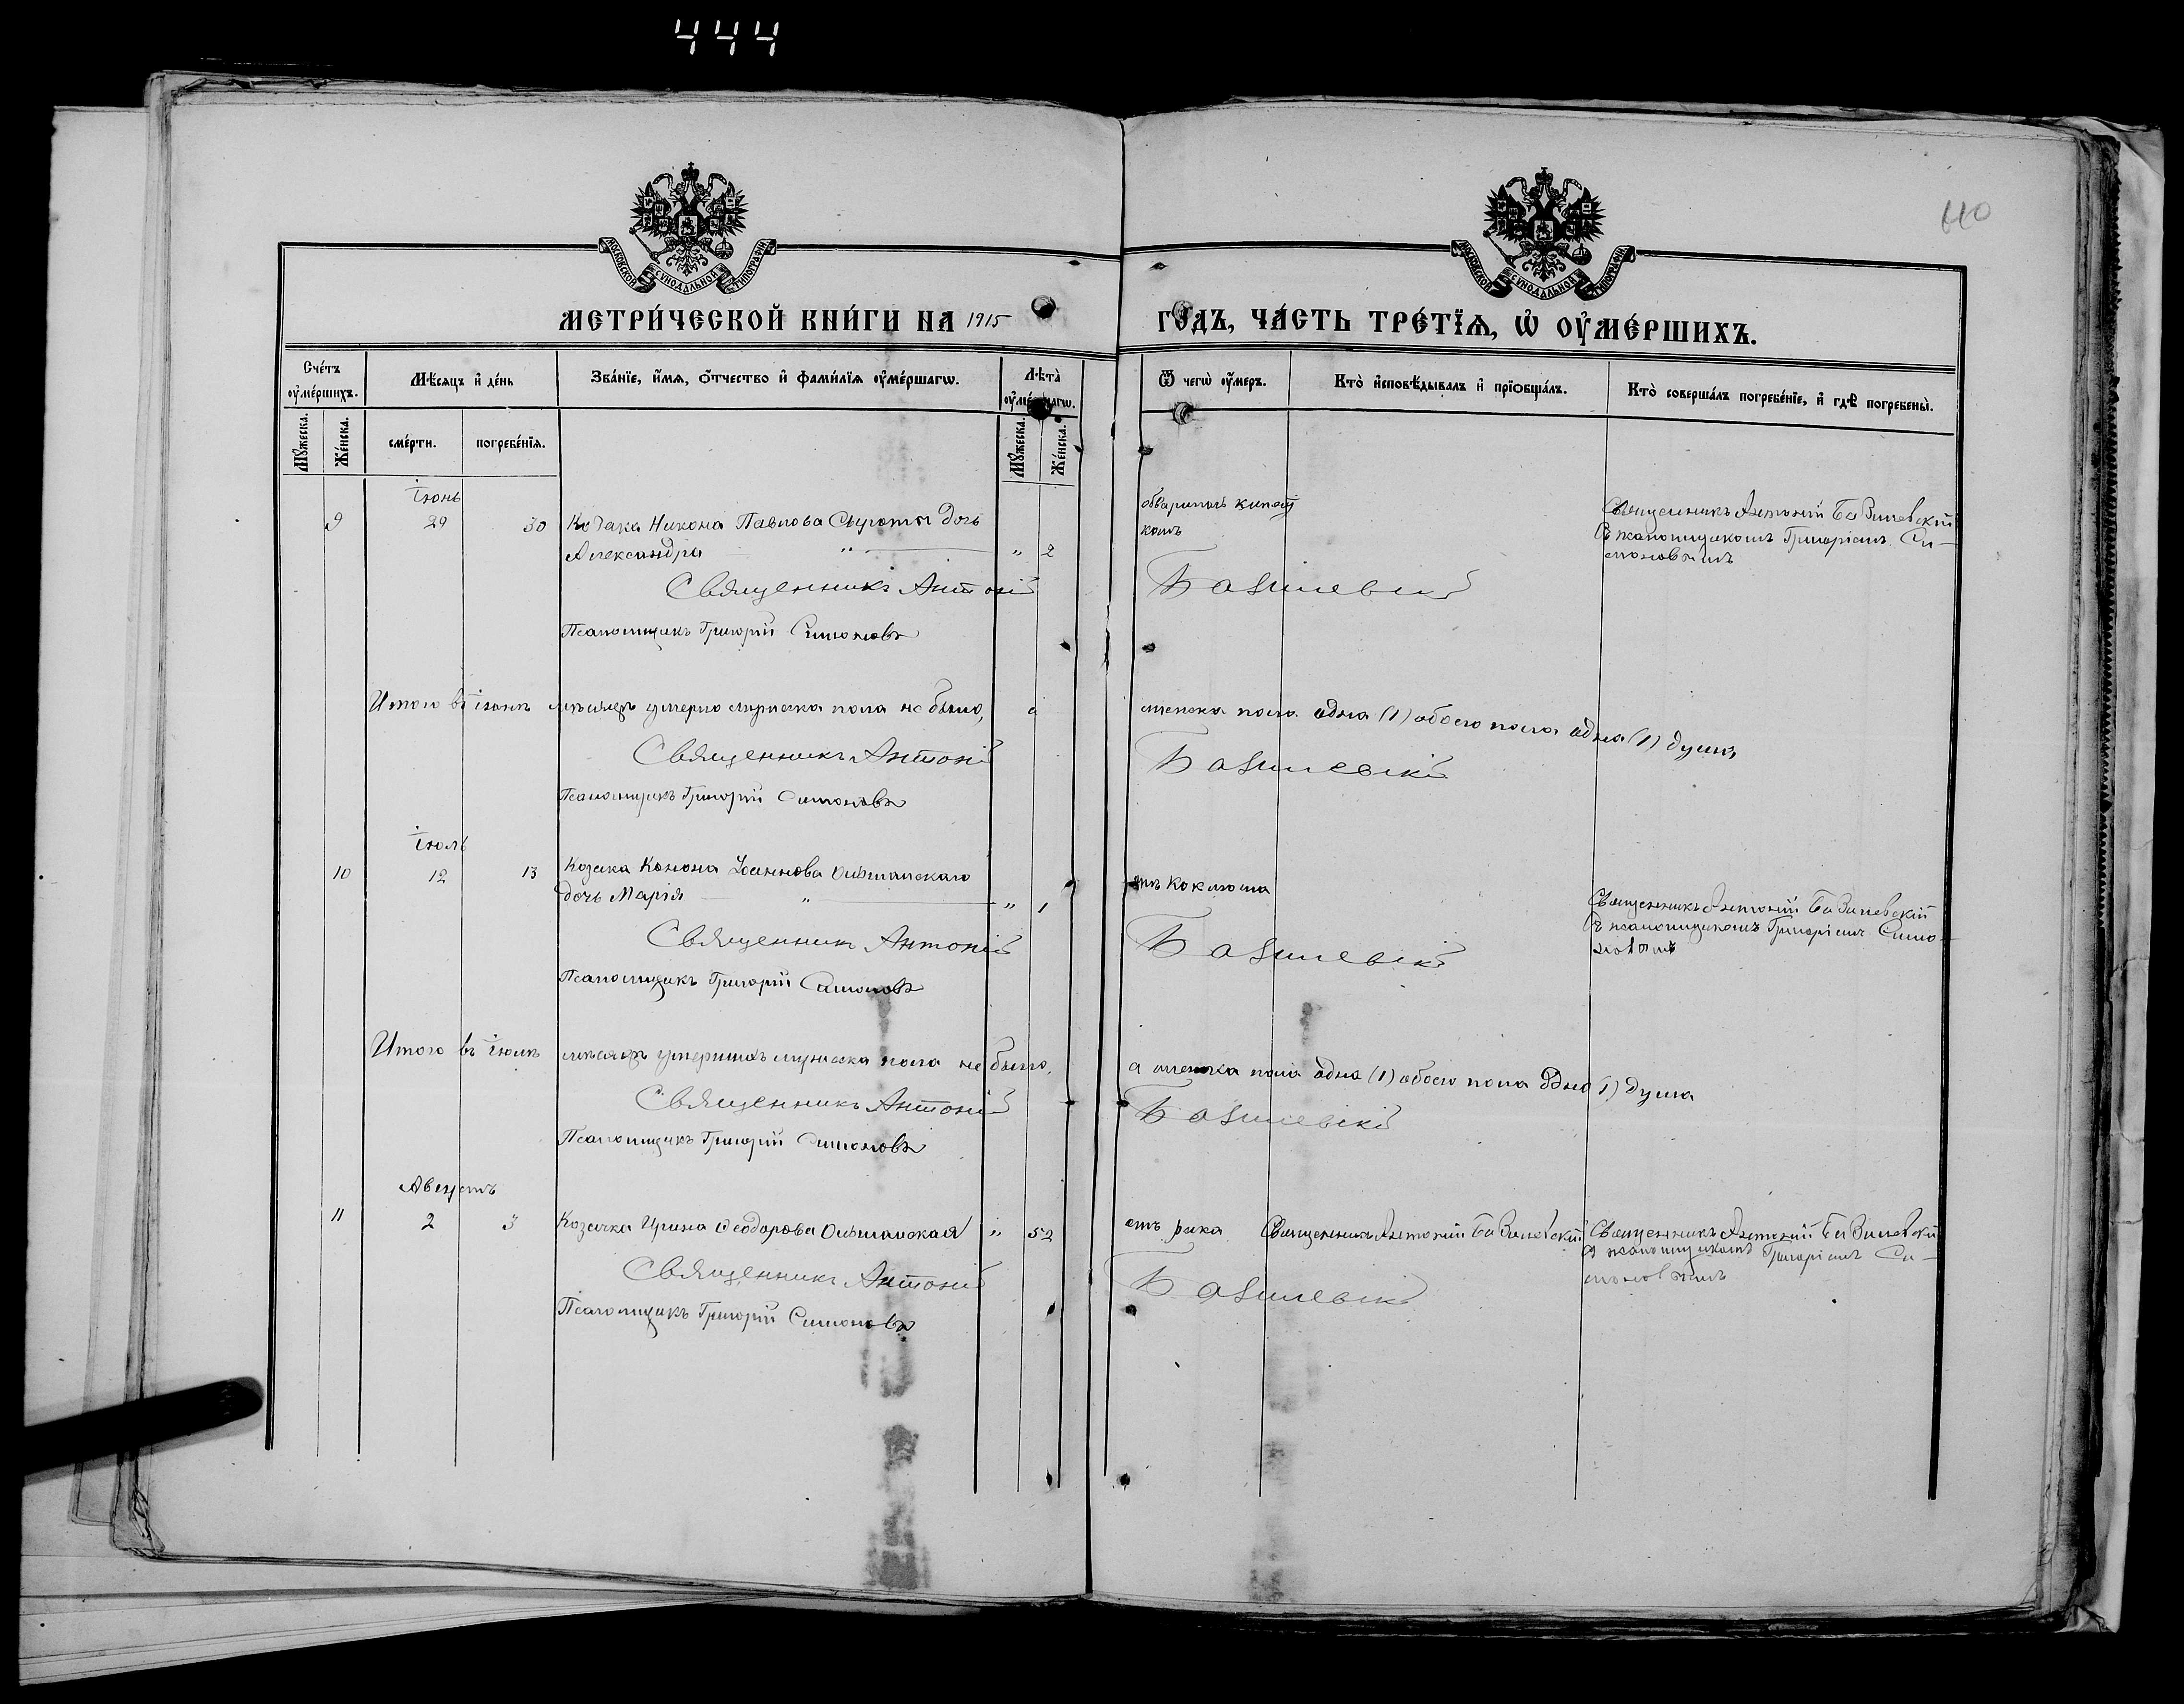 444
40
МОСКОВСКОЙ СѴНОДАЛЬНОЙ ТИПОГРАФІИ
МОСКОВСКОЙ СѴНОДАЛЬНОЙ ТИПОГРАФІИ
МЕТРИ́ЧЕСКОЙ КНИ́ГИ НА 1915 ГО́ДЪ, ЧА́СТЬ ТРЕ́ТЇѦ, Ѡ҆ ОУ҆МЕ́РШИХЪ.
Сче́тъ оу҆ме́ршихъ.
Мѣ́сяцъ и҆ де́нь
Зва́нїе, и҆́мѧ, ѻ҆́тчество и҆ фами́лїѧ оу҆ме́ршагѡ.
Лѣ́та̀ оу҆ме́ршагѡ.
Ѿ чегѡ̀ оу҆́меръ.
Кто̀ и҆сповѣ́дывалъ и҆ прїѡбща́лъ.
Кто̀ соверша́лъ погребе́нїе, и҆ гдѣ̀ погребены̀.
Мꙋ́жеска.
Же́нска.
сме́рти.
погребе́нїѧ.
Мꙋ́жеска.
Же́нска.
Іюнь
9 29 30 Козака Никона Павлова Сыроты дочь обварилась кипят Священникъ Антоній Базилевскій
Александра " " 2 комъ съ псаломщикомъ Григоріемъ Си-
моновымъ
Священникъ Антоній Базилевскій
Псаломщикъ Григорій Симоновъ
Итого въ іюнѣ мѣсяцѣ умерло мужеска пола не было, а женска пола одна (1) обоего пола одна (1) душа
Священникъ Антоній Базилевскій
Псаломщикъ Григорій Симоновъ
Іюль
10 12 13 Козака Конона Іоаннова Ольшанскаго отъ коклюша Священникъ Антоній Базилевскій
дочь Марія " " 1 съ псаломщикомъ Григоріемъ Симо-
новымъ
Священникъ Антоній Базилевскій
Псаломщикъ Григорій Симоновъ
Итого въ іюлѣ мѣсяцѣ умершихъ мужеска пола не было, а женска пола одна (1) обоего пола одна (1) душа
Священникъ Антоній Базилевскій
Псаломщикъ Григорій Симоновъ
Августъ
11 2 3 Козачка Ирина Ѳеодорова Ольшанская " 52 отъ рака Священникъ Антоній Базилевскій Священникъ Антоній Базилевскій
съ псаломщикомъ Григоріемъ Си-
моновымъ
Священникъ Антоній Базилевскій
Псаломщикъ Григорій Симоновъ